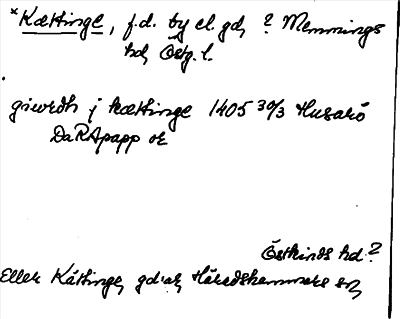 *Kættinge, f.d. by el. gd, ? Memmings
hd, Östg. l.
giwrdh j kættinge 1405 30/3 Husarö
DaRApapp or
Östkinds hd?
Eller Kättinge, gd. Häradshammars sn,